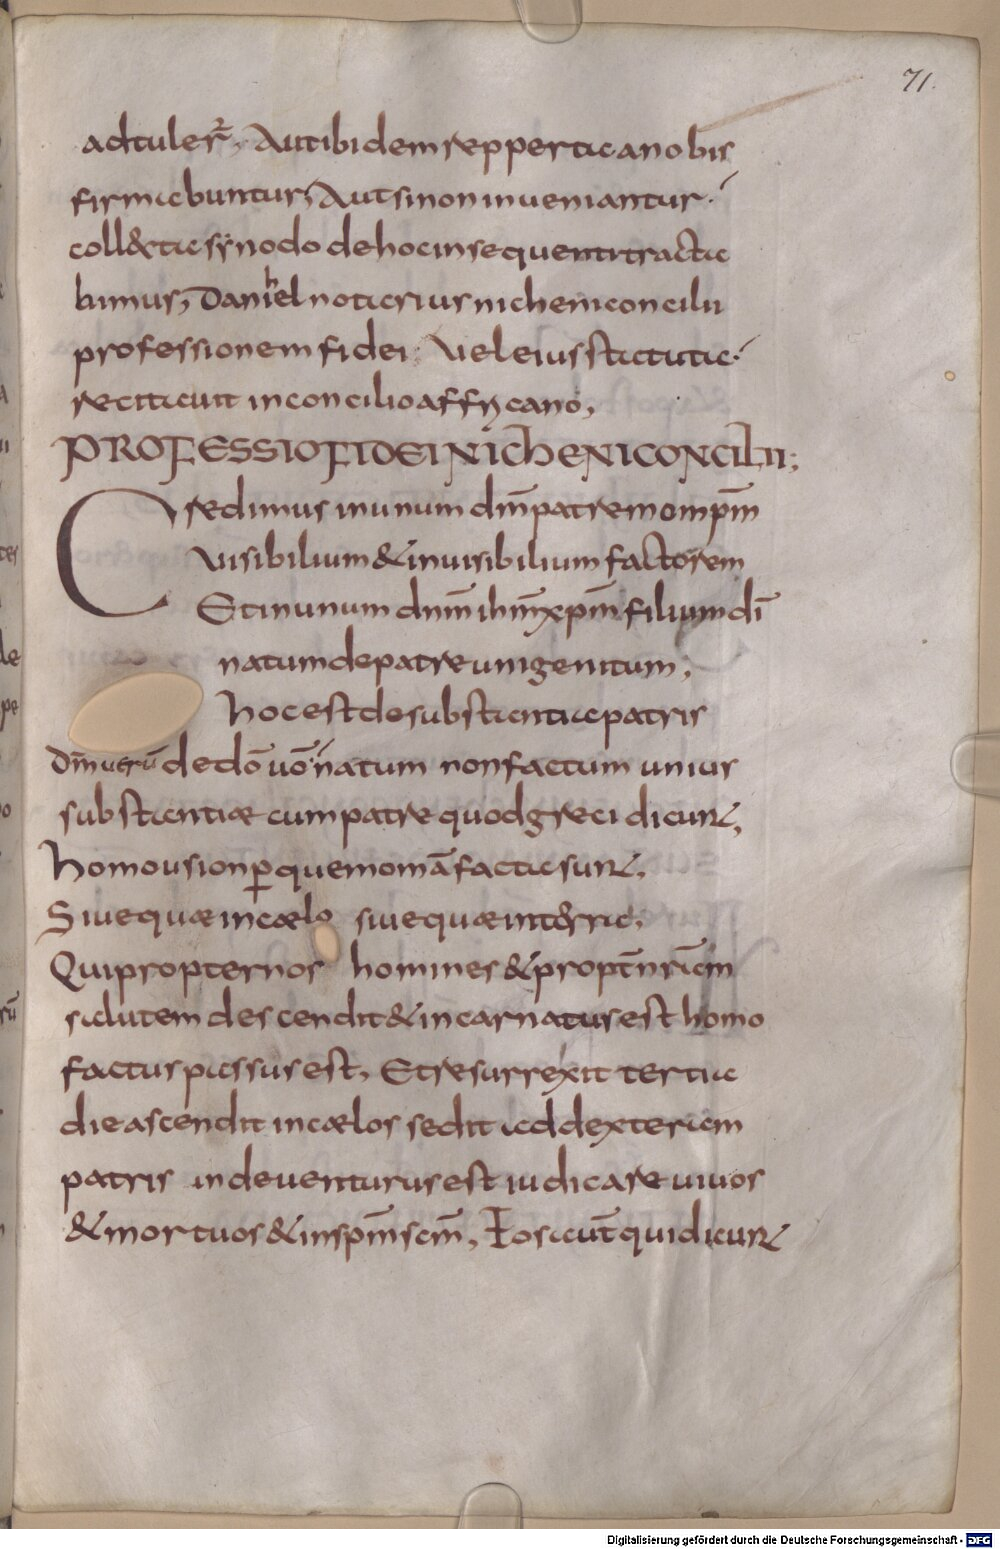 71.
adtuler̄, Aut ibidem reppertae a nobis
firmabuntur, Aut si non inueniantur.
coll&ta synodo de hoc in sequenti tracta
bimus, Danihel notarius nicheni concilii
professionem fidei. Vel eius statuta.
recitauit in concilio affrycano,
PROFESSIO FIDEI NICHENI CONCILII;
Credimus in unum dm̄ patrem omp̄m
uisibilium & inuisibilium factorem
Et in unum dnm̄ ihm̄ xpm̄ filium dī
natum de patre unigenitum,
hoc est de substantia patris
Dm̄ uerū de dō uō natum non factum unius
substantiae cum patre quod greci dicun̄,
homousion p quem omā facta sun̄,
Siue quae in caelo siue quae in terra,
Qui propter nos homines & propt̄ nr̄am
salutem descendit & incarnatus est homo
factus passus est, Et resurrexit tertia
die ascendit in caelos sedit ad dexteram
patris inde uenturus est iudicare uiuos
& mortuos & in spm̄ scm̄, Eos aut̄ qui dicun̄
Digitalisierung gefördert durch die Deutsche Forschungsgemeinschaft - DFG